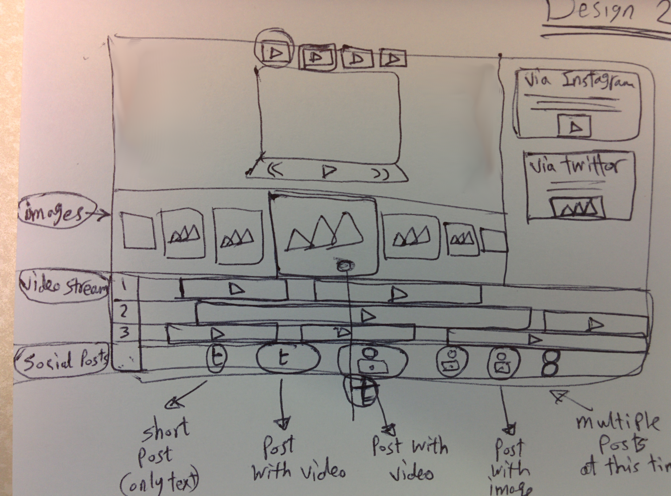 Design 2
via Instagram
via twitter
images
video stream
1
2
3
Social Posts
t
t
t
short
Post
(only text)
Post
with video
Post with
video
Post
with
image
multiple
Posts
at this tim